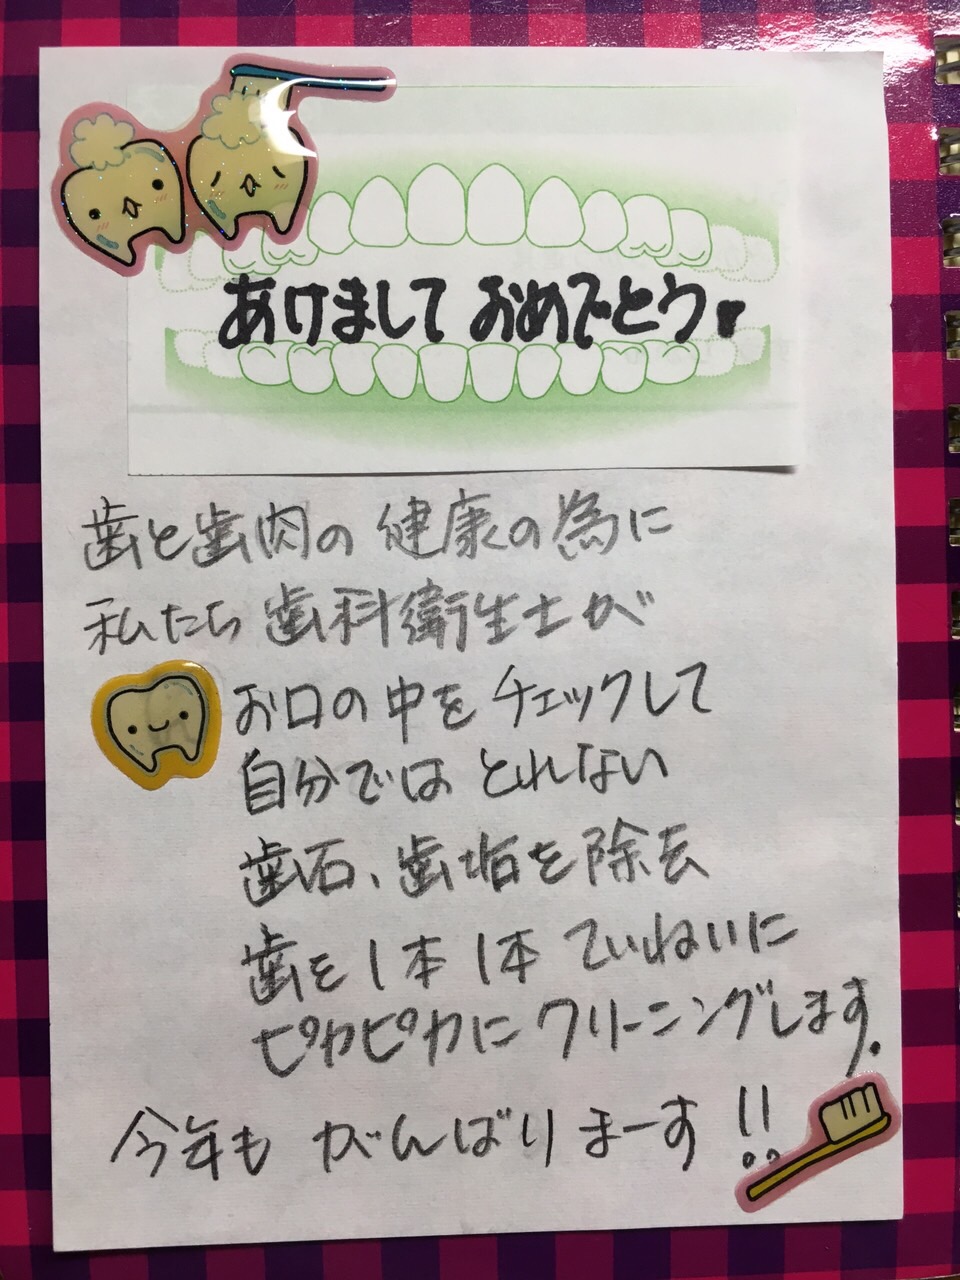 あけまして おめでとう
歯と歯肉の 健康の為に
私たち 歯科衛生士が
お口の中を チェックして
自分では とれない
歯石、歯垢を除去
歯を1本1本 ていねいに
ピカピカに クリーニングします.
今年も がんばりまーす!!